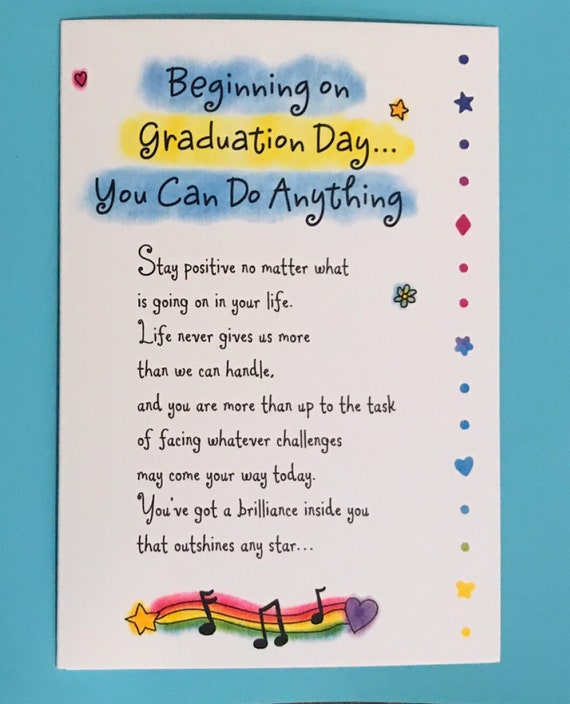 Beginning on
Graduation Day...
You Can Do Anything
Stay positive no matter what
is going on in your life.
Life never gives us more
than we can handle,
and you are more than up to the task
of facing whatever challenges
may come your way today.
You've got a brilliance inside you
that outshines any star...